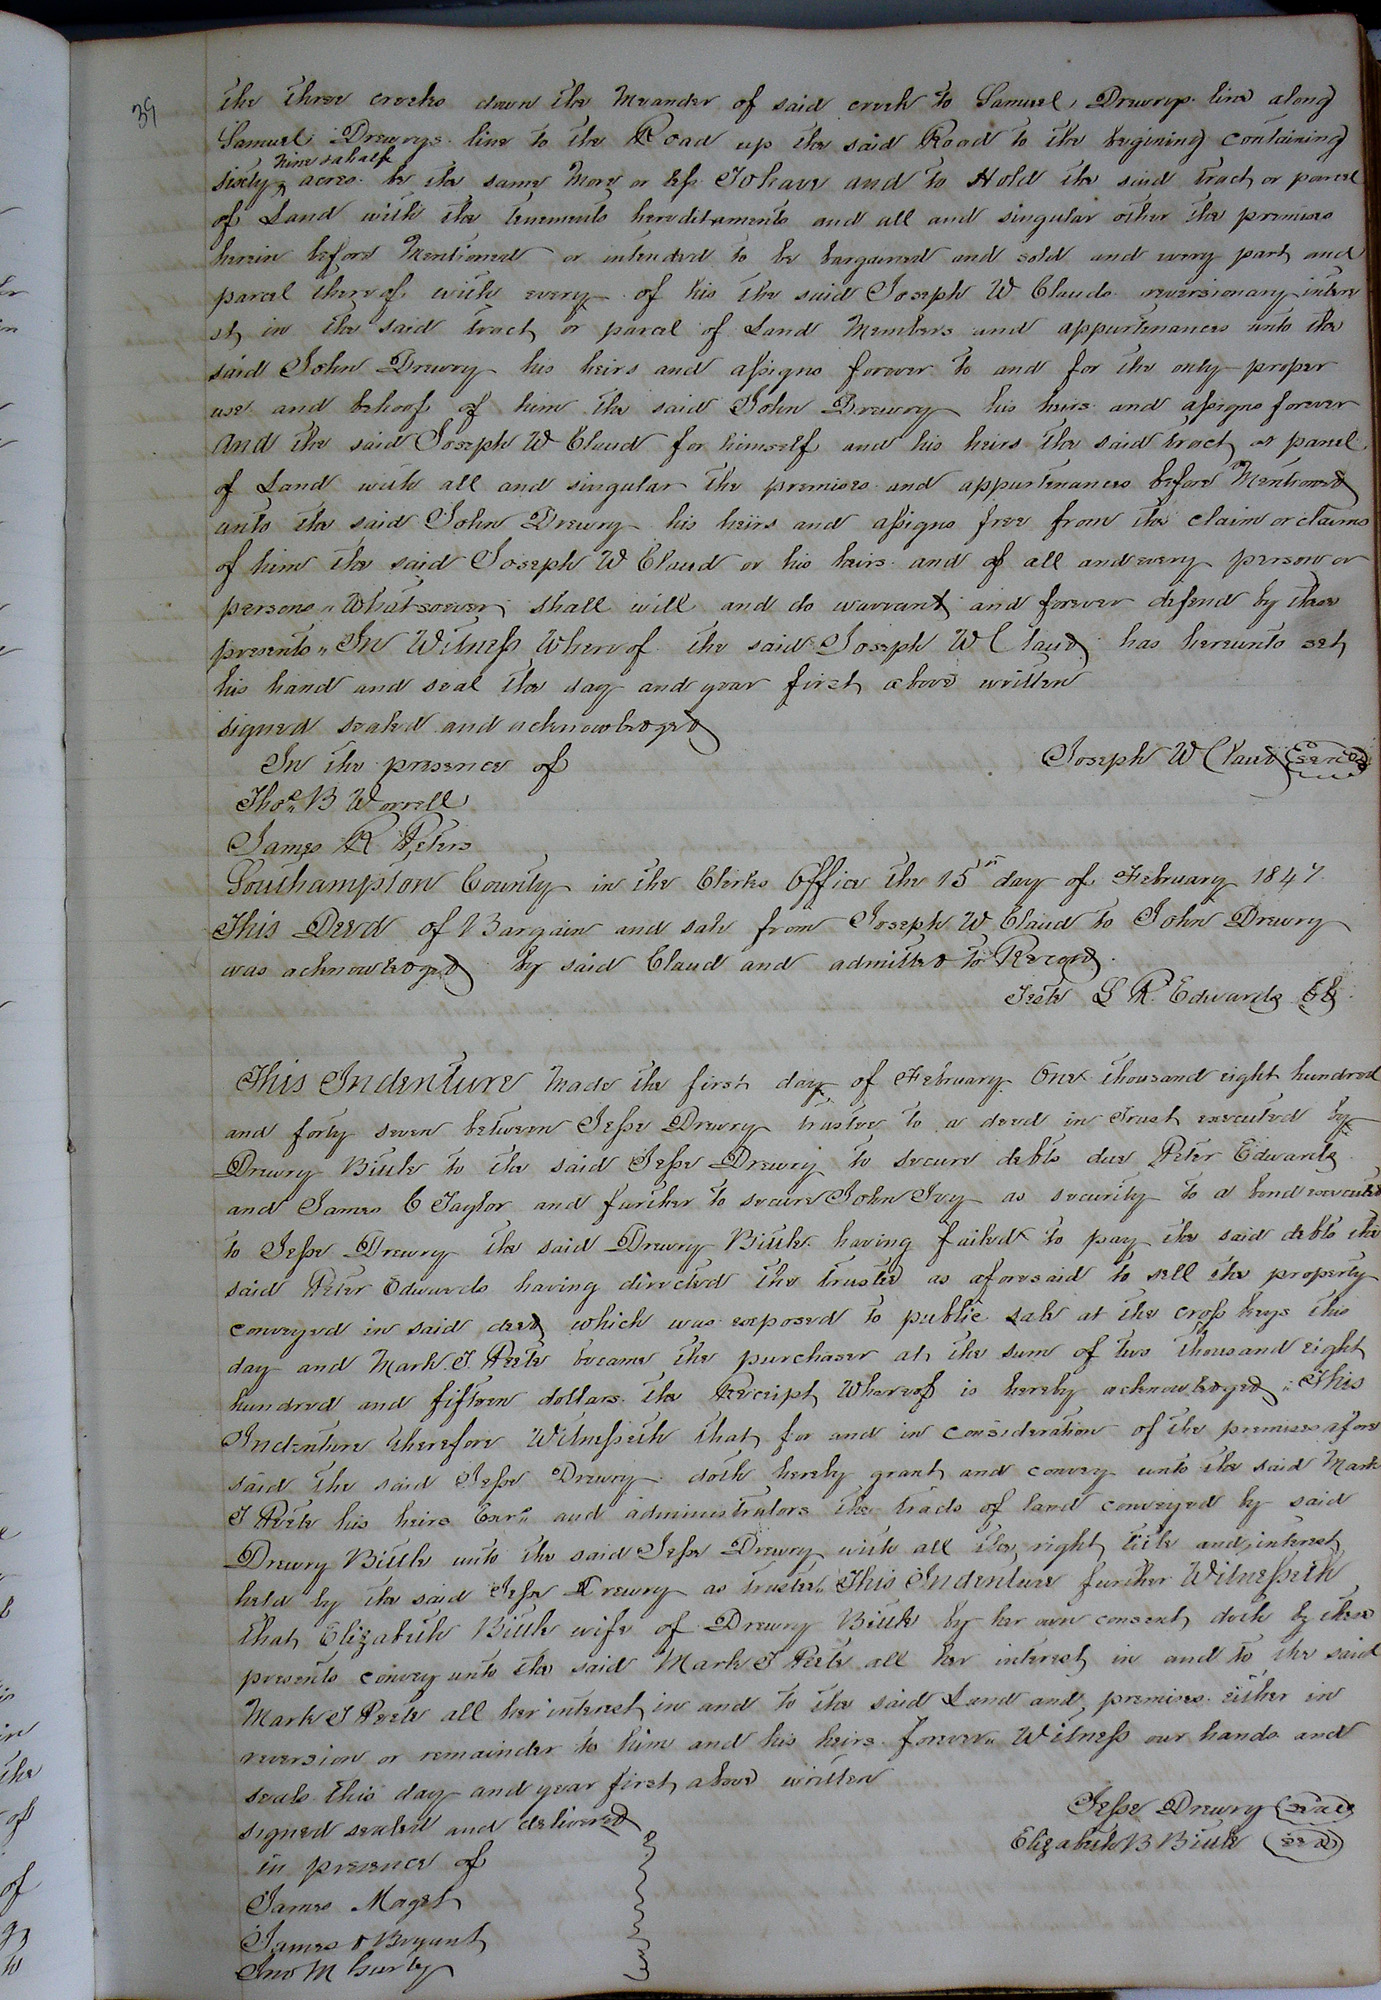 39
the three creeks down the Meander of said creek to Samuel Drewrys line along
Samuel Drewrys line to the Road up the said Road to the begining containing
nine & a half
sixty acres be the same More or less To have and to Hold the said tract or parcel
of Land with the tenements hereditaments and all and singular other the premises
herein before Mentioned or intended to be bargained and sold and every part and
parcel thereof with every of his the said Joseph W Clauds reversionary intere
st in the said tract or parcel of Land Members and appurtenances unto the
said John Drewry his heirs and assigns forever to and for the only proper
use and behoof of him the said John Drewry his heirs and assigns forever
And the said Joseph W Claud for himself and his heirs the said tract or parcel
of Land with all and singular the premises and appurtenances before Mentioned
unto the said John Drewry his heirs and assigns free from the claim or claims
of him the said Joseph W Claud or his heirs and of all and every person or
persons Whatsoever shall will and do warrant and forever defend by these
presents " In Witness Whereof the said Joseph W Claud has hereunto set
his hand and seal the day and year first above written
signed sealed and acknowledged
In the presence of
Joseph W Claud Seal
Thos B Worrell
James R Peters
Southampton County in the Clerks Office the 15th day of February 1847
This Deed of Bargain and sale from Joseph W Claud to John Drewry
was acknowledged by said Claud and admitted to Record.
Teste L R Edwards Clk
This Indenture Made the first day of February One thousand eight hundred
and forty seven between Jesse Drewry trustee to a deed in Trust executed by
Drewry Bittle to the said Jesse Drewry to secure debts due Peter Edwards
and James C Taylor and further to secure John Ivy as security to a bond executed
to Jesse Drewry the said Drewry Bittle having failed to pay the said debts the
said Peter Edwards having directed the trustee as aforesaid to sell the property
conveyed in said deed which was exposed to public sale at the cross keys this
day and Mark J Peete became the purchaser at the sum of two thousand eight
hundred and fifteen dollars the Receipt Whereof is hereby acknowledged " This
Indenture therefore Witnesseth that for and in consideration of the premises afore
said the said Jesse Drewry doth hereby grant and convey unto the said Mark
J Peete his heirs Exrs and administrators the tracts of land conveyed by said
Drewry Bittle unto the said Jesse Drewry with all the right title and interest
held by the said Jesse Drewry as trustee " This Indenture further Witnesseth
that Elizabeth Bittle wife of Drewry Bittle by her own consent doth by these
presents convey unto the said Mark J Peete all her interest in and to the said
Mark J Peete all her interest in and to the said Land and premises either in
reversion or remainder to him and his heirs forever " Witness our hands and
seals this day and year first above written
signed sealed and delivered
Jesse Drewry Seal
in presence of
Elizabeth B Bittle Seal
James Maget
James Bryant
Jno M Gurley